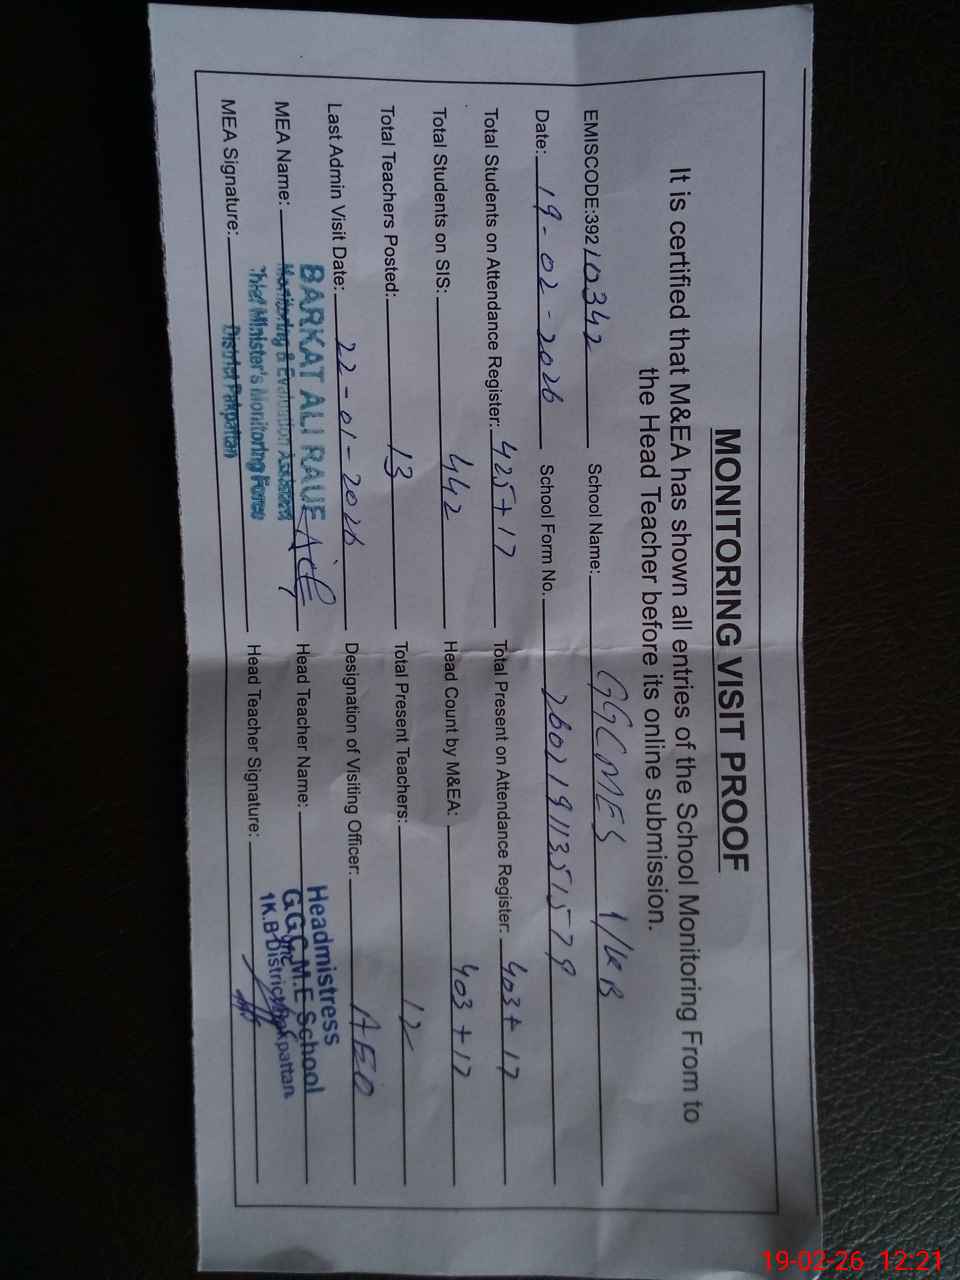 MONITORING VISIT PROOF
It is certified that M&EA has shown all entries of the School Monitoring From to
the Head Teacher before its online submission.
EMISCODE:39210342 School Name: GGCMES 1/KB
Date: 19-02-2026 School Form No. 26021911351579
Total Students on Attendance Register: 425+17 Total Present on Attendance Register: 403+17
Total Students on SIS: 442 Head Count by M&EA: 403+17
Total Teachers Posted: 13 Total Present Teachers: 12
Last Admin Visit Date: 22-01-2026 Designation of Visiting Officer: AEO
MEA Name: BARKAT ALI RAUF Head Teacher Name: Headmistress
Monitoring & Evaluation Assistant G.G.C.M.E School
Chief Minister's Monitoring Force 1K.B District Pakpattan
MEA Signature: District Pakpattan Head Teacher Signature:
19-02-26 12:21